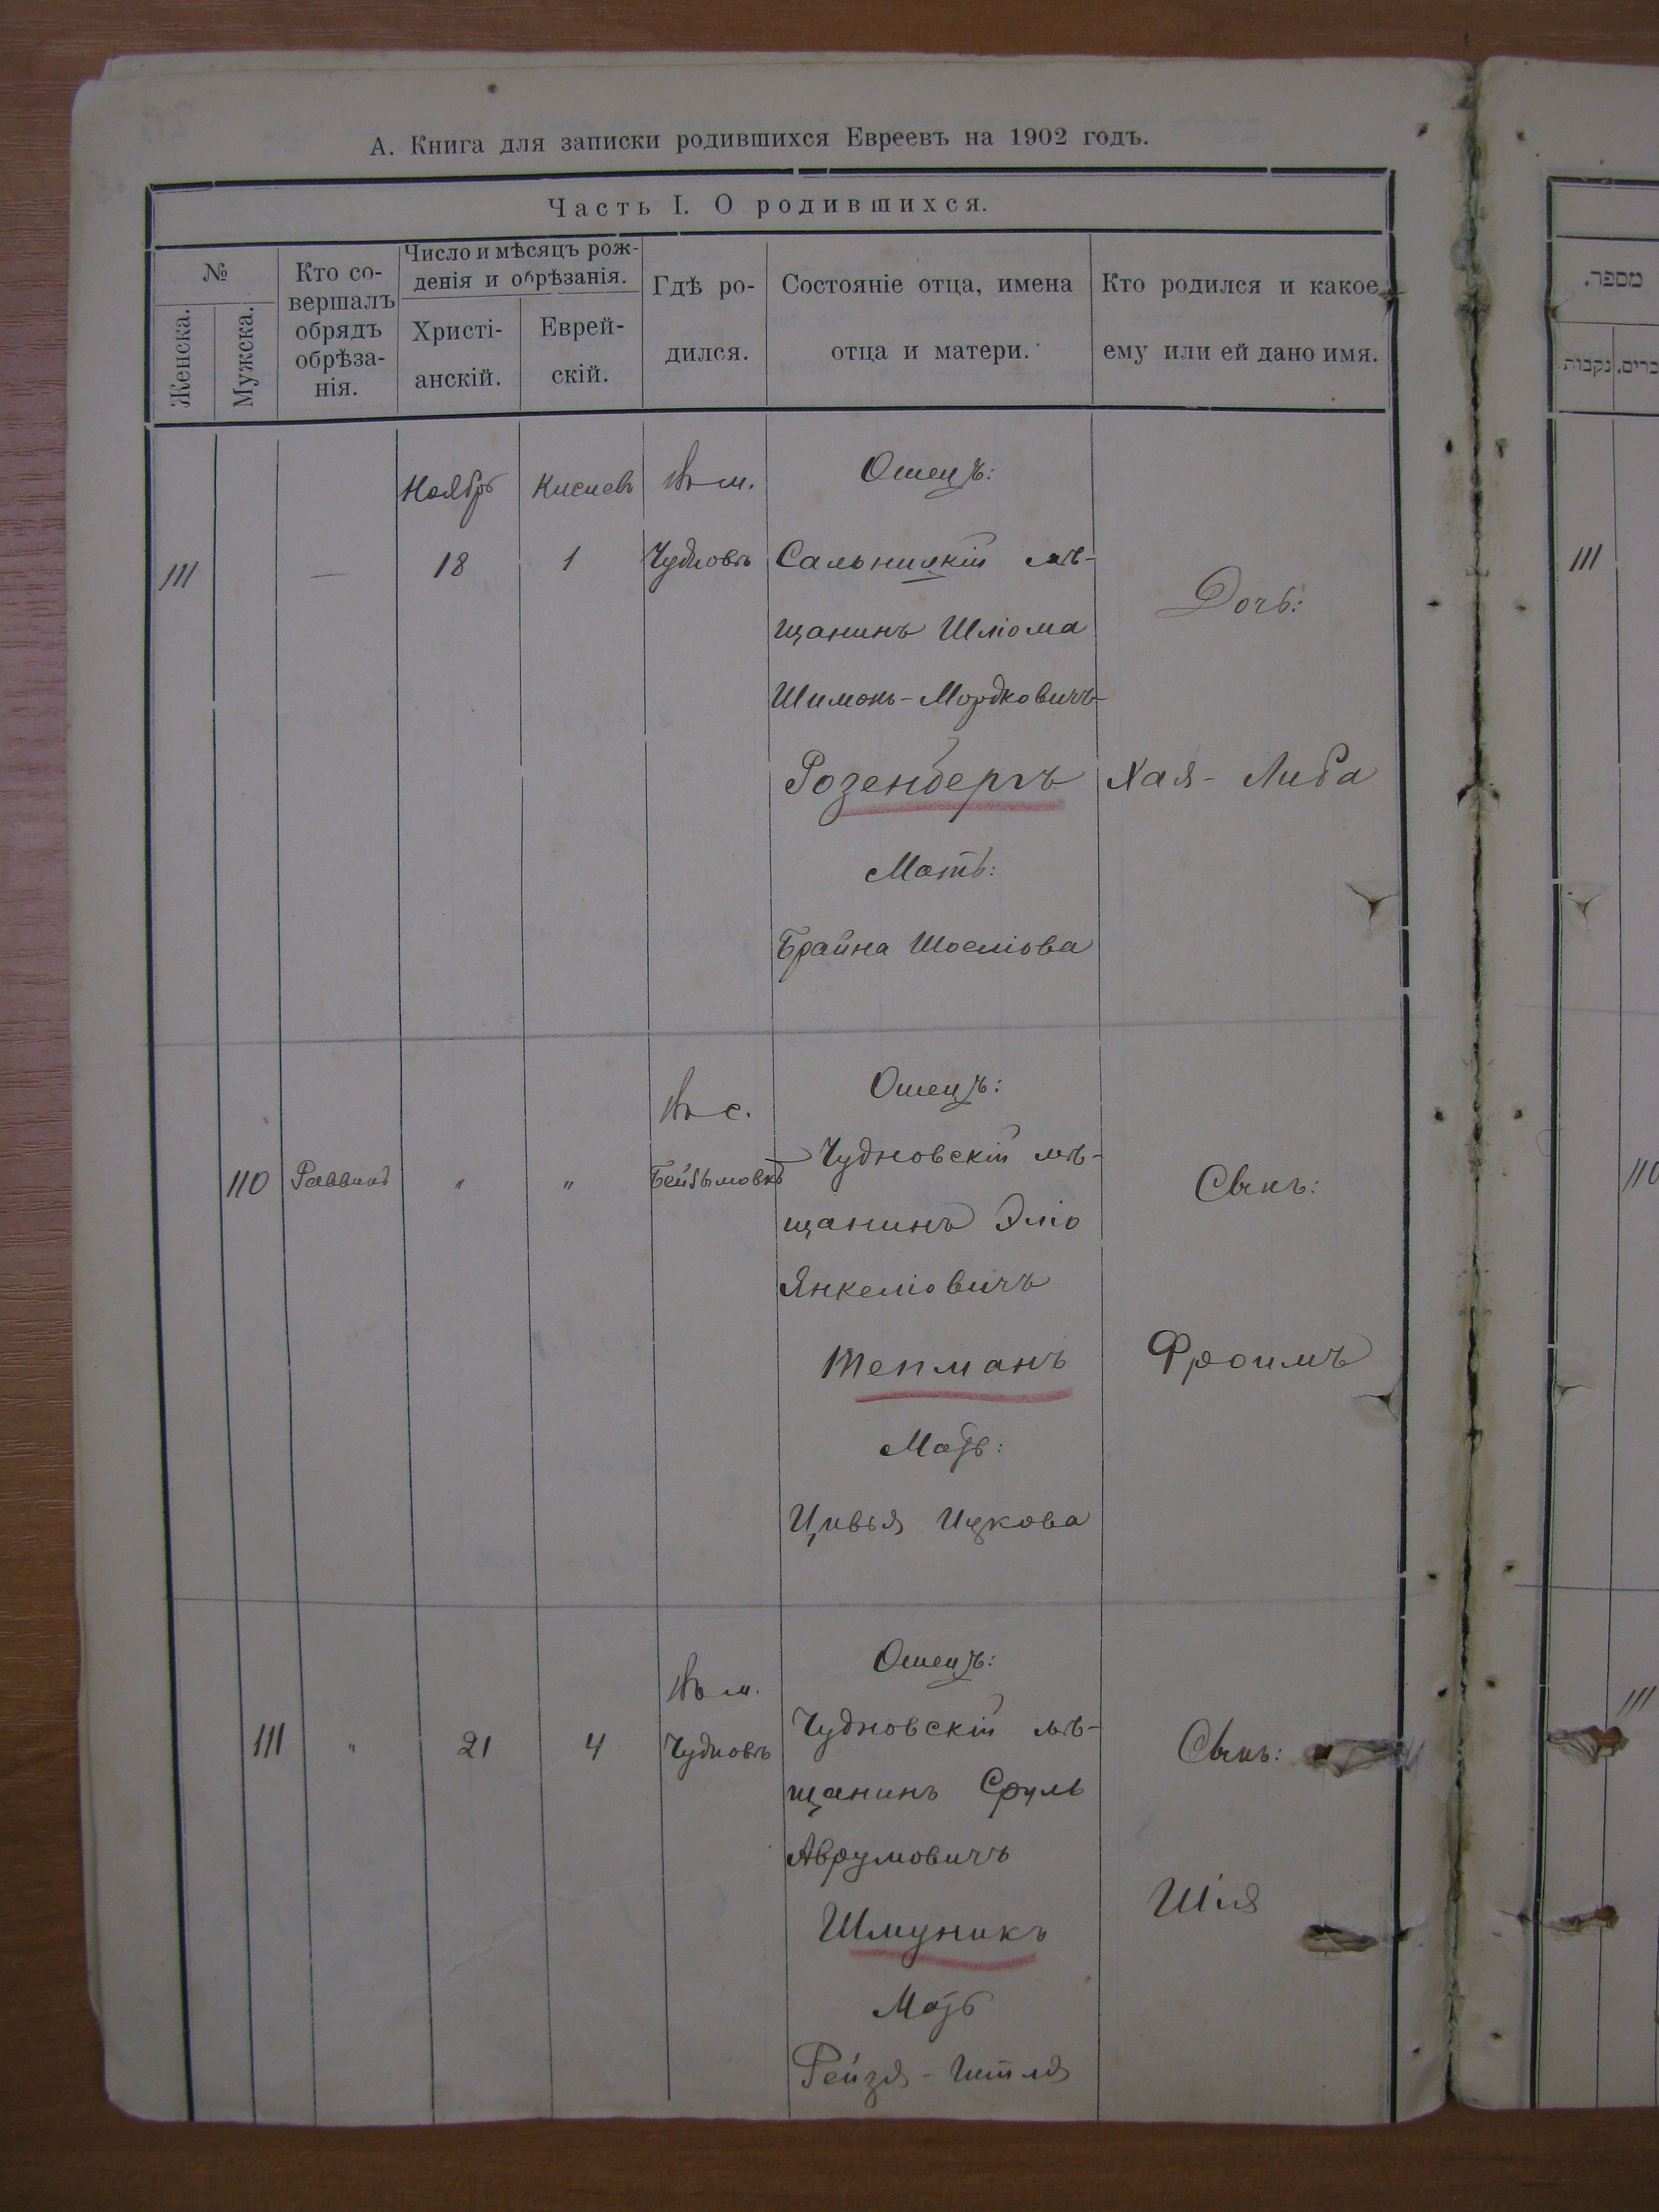 А. Книга для записки родившихся Евреевъ на 1902 годъ.
Часть I. О родившихся.
№
Женска.
Мужска.
Кто со-
вершалъ
обрядъ
обрѣза-
нія.
Число и мѣсяцъ рож-
денія и обрѣзанія.
Христі-
анскій.
Еврей-
скій.
Гдѣ ро-
дился.
Состояніе отца, имена
отца и матери.
Кто родился и какое
ему или ей дано имя.
מספר.
נקבות
כרים.
111
—
Ноябрь
18
Кислевъ
1
Въ м.
Чудновъ
Отецъ:
Сальницкій мѣ-
щанинъ Шліома
Шимонъ-Мордковичъ-
Розенбергъ
Мать:
Брайна Шоеліова
Дочь:
Хая-Либа
111
110
Раввинъ
"
"
Въ с.
Бейзымовкѣ
Отецъ:
Чудновскій мѣ-
щанинъ Эліо
Янкеліовичъ
Тепманъ
Мать:
Цивья Ицкова
Сынъ:
Фроимъ
110
111
"
21
4
Въ м.
Чудновъ
Отецъ:
Чудновскій мѣ-
щанинъ Сруль
Аврумовичъ
Шмуникъ
Мать
Рейзя-Итля
Сынъ:
Шія
111